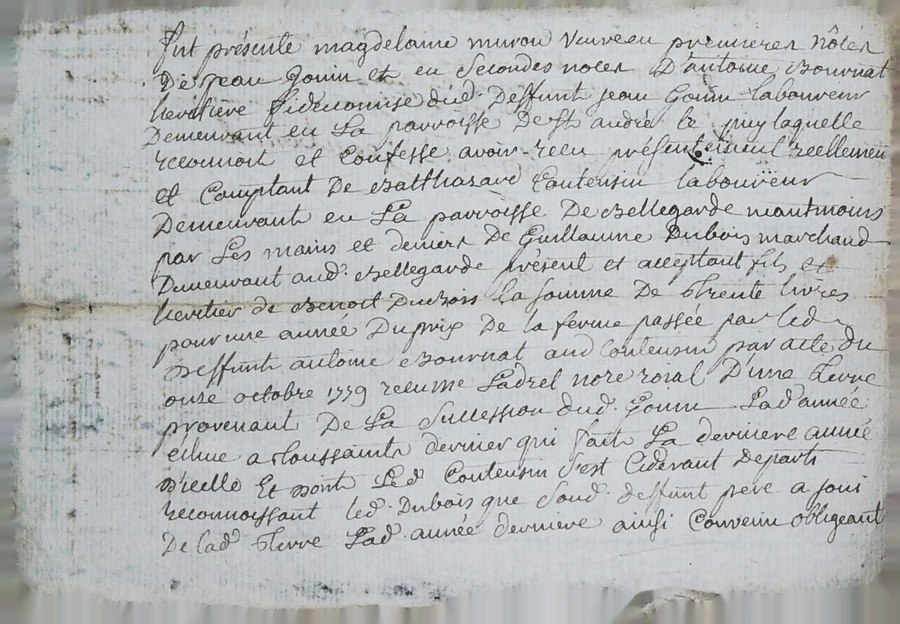 fut présente magdelaine murou veuve en premieres nôces
De jean Gouin et en secondes noces D'antoine Bournat
heritiere fideicomise dud. Deffunt jean Gouin laboureur
Demeurant en La parroisse De st andré le puy laquelle
reconnoit et Confesse avoir recu présentement reellement
et Comptant De Balthasard Coutensin laboureur
Demeurant en La parroisse De Bellegarde neantmoins
par Les mains et deniers De Guillaume Dubois marchand
Demeurant aud. Bellegarde présent et acceptant fils et
heritier de Benoit Dubois La somme De trente livres
pour une année Du prix De la ferme passée par led
Deffunt antoine Bournat aud Coutensin par acte du
onze octobre 1779 recu me Ladret nore roial D'une terre
provenant De La Succession dud. Gouin Lad année
échue a toussaints dernier qui fait La derniere année
D'icelle Et dont Led Coutensin s'est Cidevant Departi
reconnoissant led. Dubois que Soud. deffunt pere a joui
De lad terre Lad. année derniere ainsi Convenu obligeant